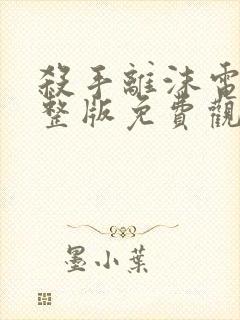 殺手離沫電
整版免費觀
墨小葉